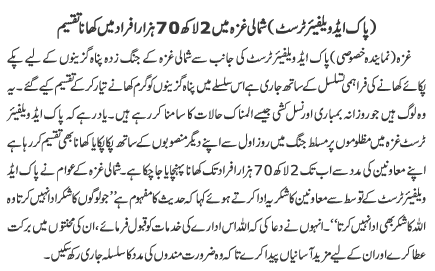 (پاک ایڈ ویلفیئر ٹرسٹ) شمالی غزہ میں 2 لاکھ 70 ہزار افراد میں کھانا تقسیم
غزہ (نمایندہ خصوصی) پاک ایڈ ویلفیئر ٹرسٹ کی جانب سے شمالی غزہ کے جنگ زدہ پناہ گزینوں کے لیے پکے
پکائے کھانے کی فراہمی تسلسل کے ساتھ جاری ہے اس سلسلے میں پناہ گزینوں کو گرم کھانے تیار کر کے تقسیم کیے گئے۔ یہ
وہ لوگ ہیں جو روزانہ بمباری اور نسل کشی جیسے المناک حالات کا سامنا کر رہے ہیں۔ یاد رہے کہ پاک ایڈ ویلفیئر
ٹرسٹ غزہ میں مظلوموں پر مسلط جنگ میں روز اول سے اپنے دیگر منصوبوں کے ساتھ پکا پکایا کھانا بھی تقسیم کر رہا ہے
اپنے معاونین کی مدد سے اب تک 2 لاکھ 70 ہزار افراد تک کھانا پہنچایا جا چکا ہے۔ شمالی غزہ کے عوام نے پاک ایڈ
ویلفیئر ٹرسٹ کے توسط سے معاونین کا شکریہ ادا کرتے ہوئے کہا کہ حدیث کا مفہوم ہے ”جو لوگوں کا شکر ادا نہیں کرتا وہ
اللہ کا شکر بھی ادا نہیں کرتا“۔ انہوں نے دعا کی کہ اللہ اس ادارے کی خدمات کو قبول فرمائے، ان کی محنتوں میں برکت
عطا کرے اور ان کے لیے مزید آسانیاں پیدا کرے تاکہ وہ ضرورت مندوں کی مدد کا سلسلہ جاری رکھ سکیں۔